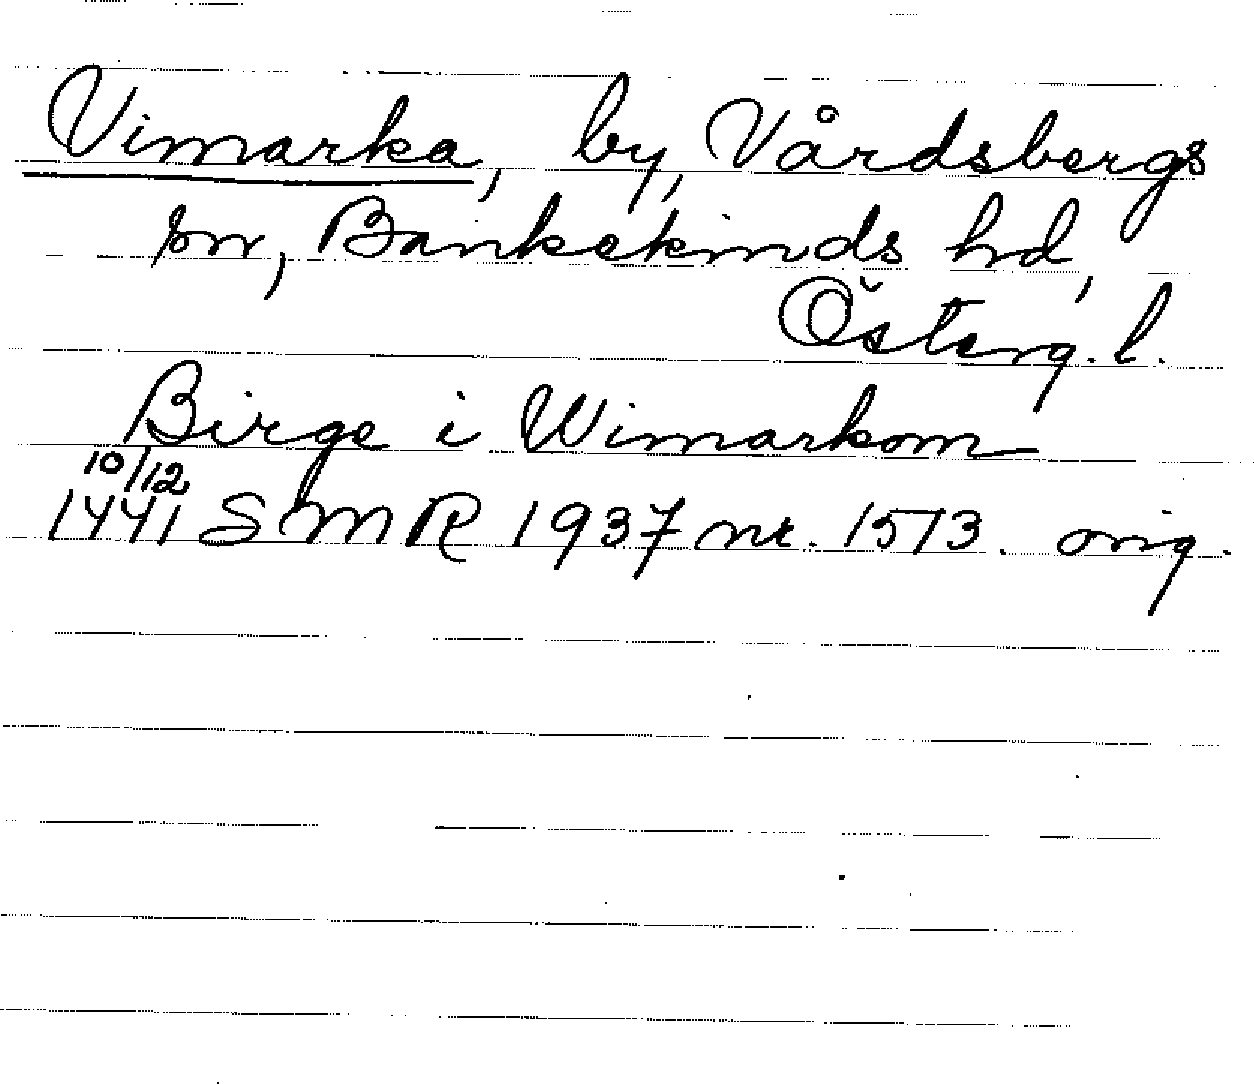 Vimarka, by, Vårdsbergs
sn, Bankekinds hd,
Österg. l.
Birge i Wimarkom
10/12
1441 SMR 1937 nr. 1573. orig.